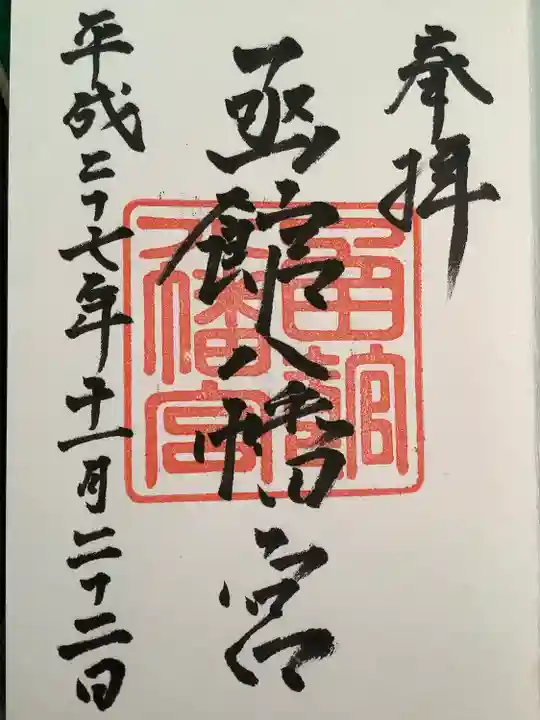 奉拝
函館八幡宮
函館八幡宮
平成二十七年十一月二十二日